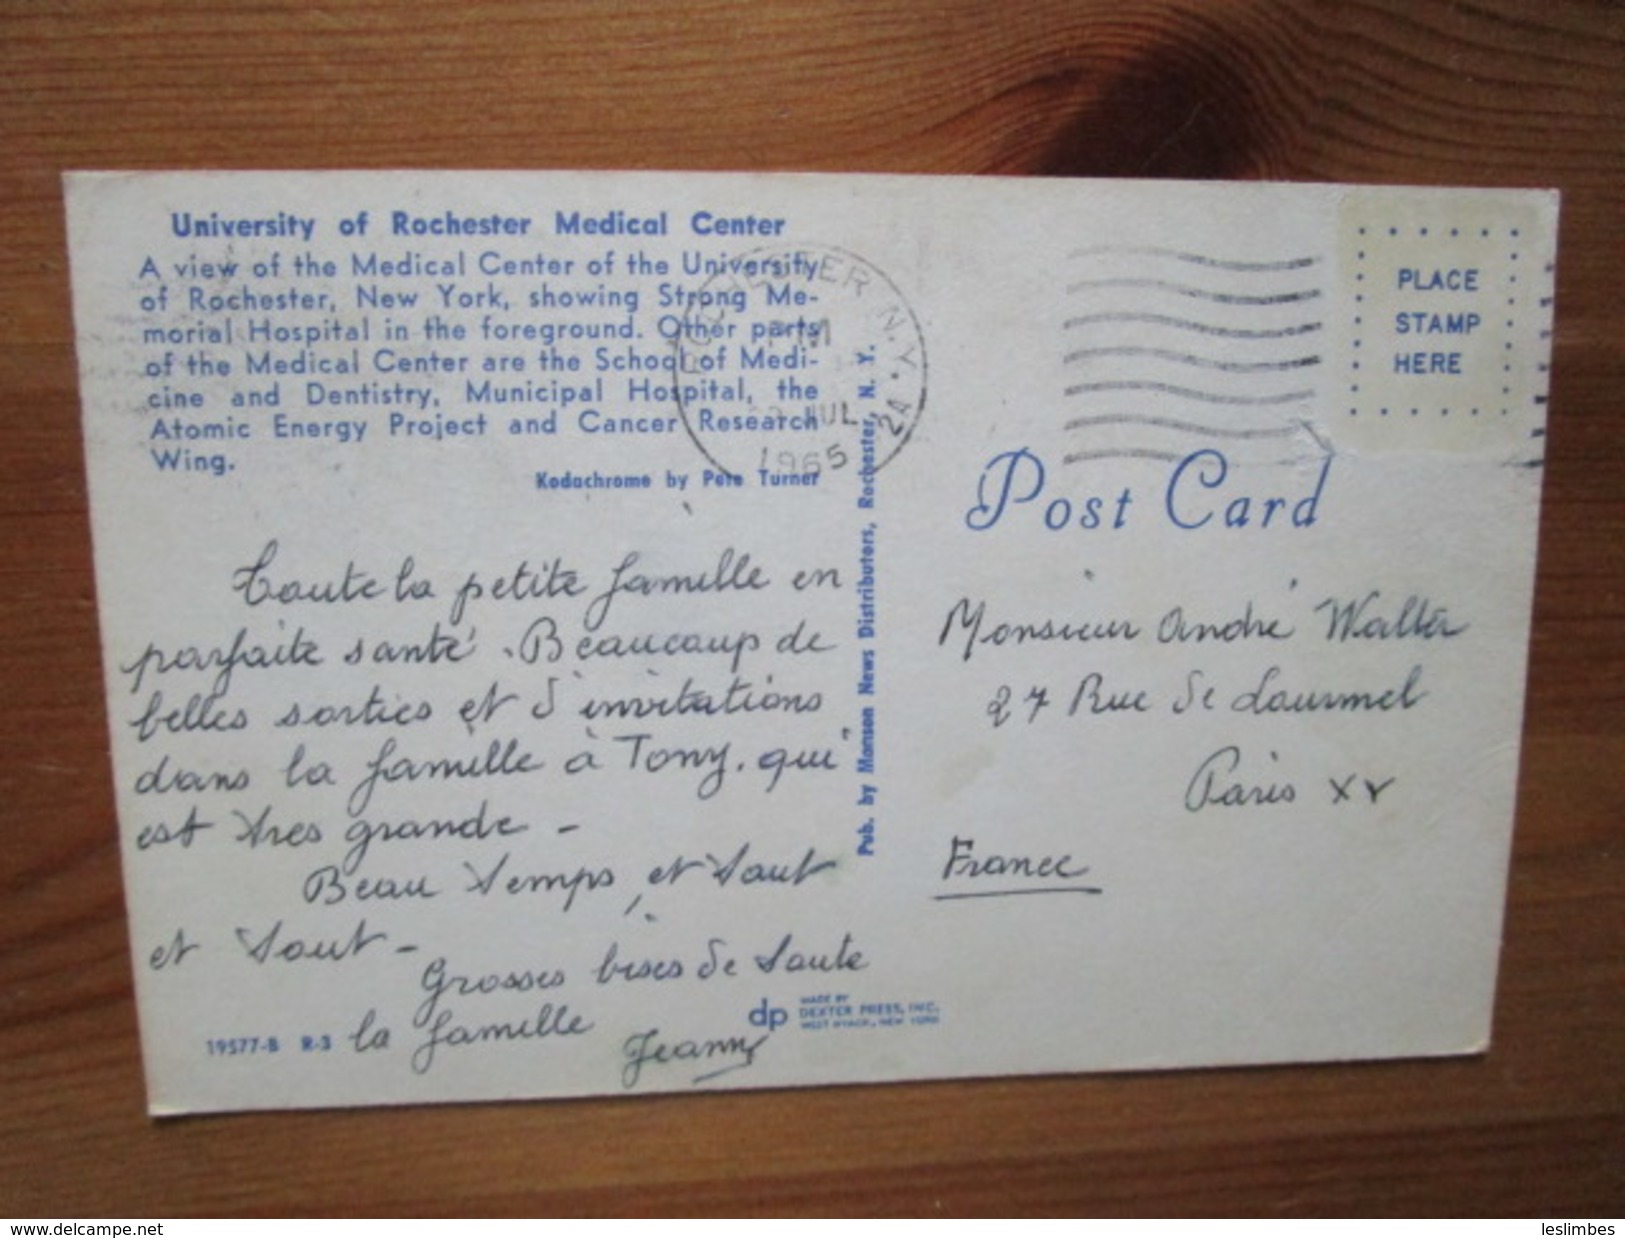 University of Rochester Medical Center
A view of the Medical Center of the University
of Rochester, New York, showing Strong Me-
morial Hospital in the foreground. Other parts
of the Medical Center are the School of Medi-
cine and Dentistry, Municipal Hospital, the
Atomic Energy Project and Cancer Research
Wing.
Kodachrome by Pete Turner
Toute la petite famille en
parfaite santé. Beaucoup de
belles sorties et d'invitations
dans la famille à Tony. qui
est très grande -
Beau temps, et tout
et tout -
Grosses bises de toute
la famille
Jeanny
19577-B R-3
dp MADE BY
DEXTER PRESS, INC.
WEST NYACK, NEW YORK
Pub. by Manson News Distributors, Rochester, N. Y.
ROCHESTER N.Y. 2A
PM
JUL
1965
PLACE
STAMP
HERE
Post Card
Monsieur André Walter
27 Rue de Lourmel
Paris XV
France
delcampe.net
leslimbes